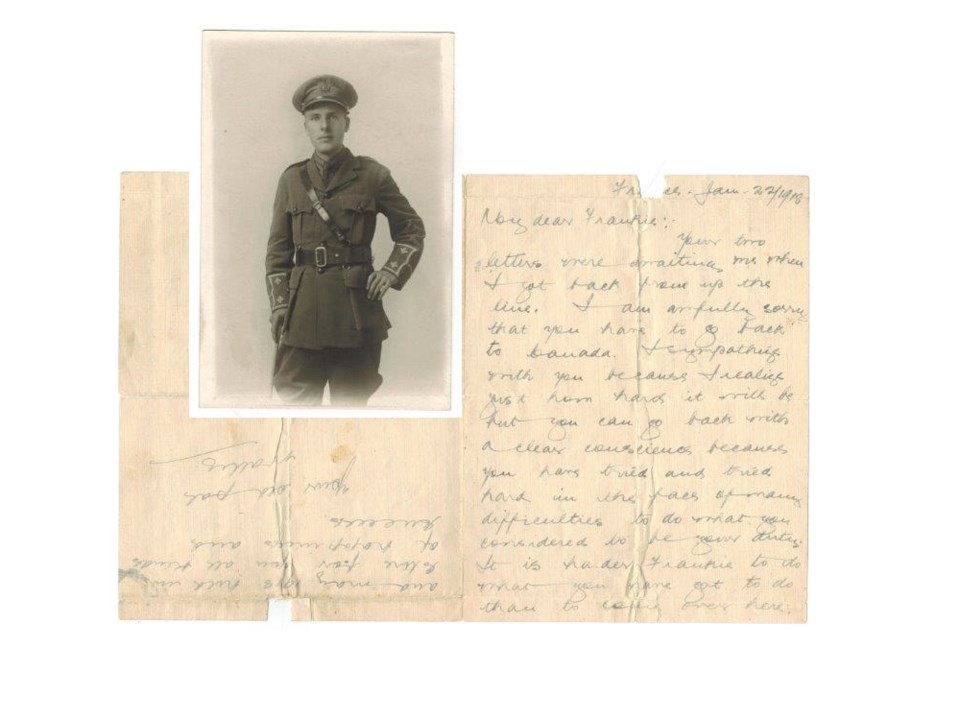 France. Jan. 22/1918
My dear Frankie:
Your two
letters were awaiting me when
I got back from up the
line. I am awfully sorry
that you have to go back
to Canada. I sympathize
with you because I realize
just how hard it will be
but you can go back with
a clear conscience because
you have tried and tried
hard in the face of many
difficulties to do what you
considered to be your duty.
It is harder Frankie to do
what you have got to do
than to come over here.
and may 1918 hold in
store for you all kinds
of happiness and
success.
Your old pal